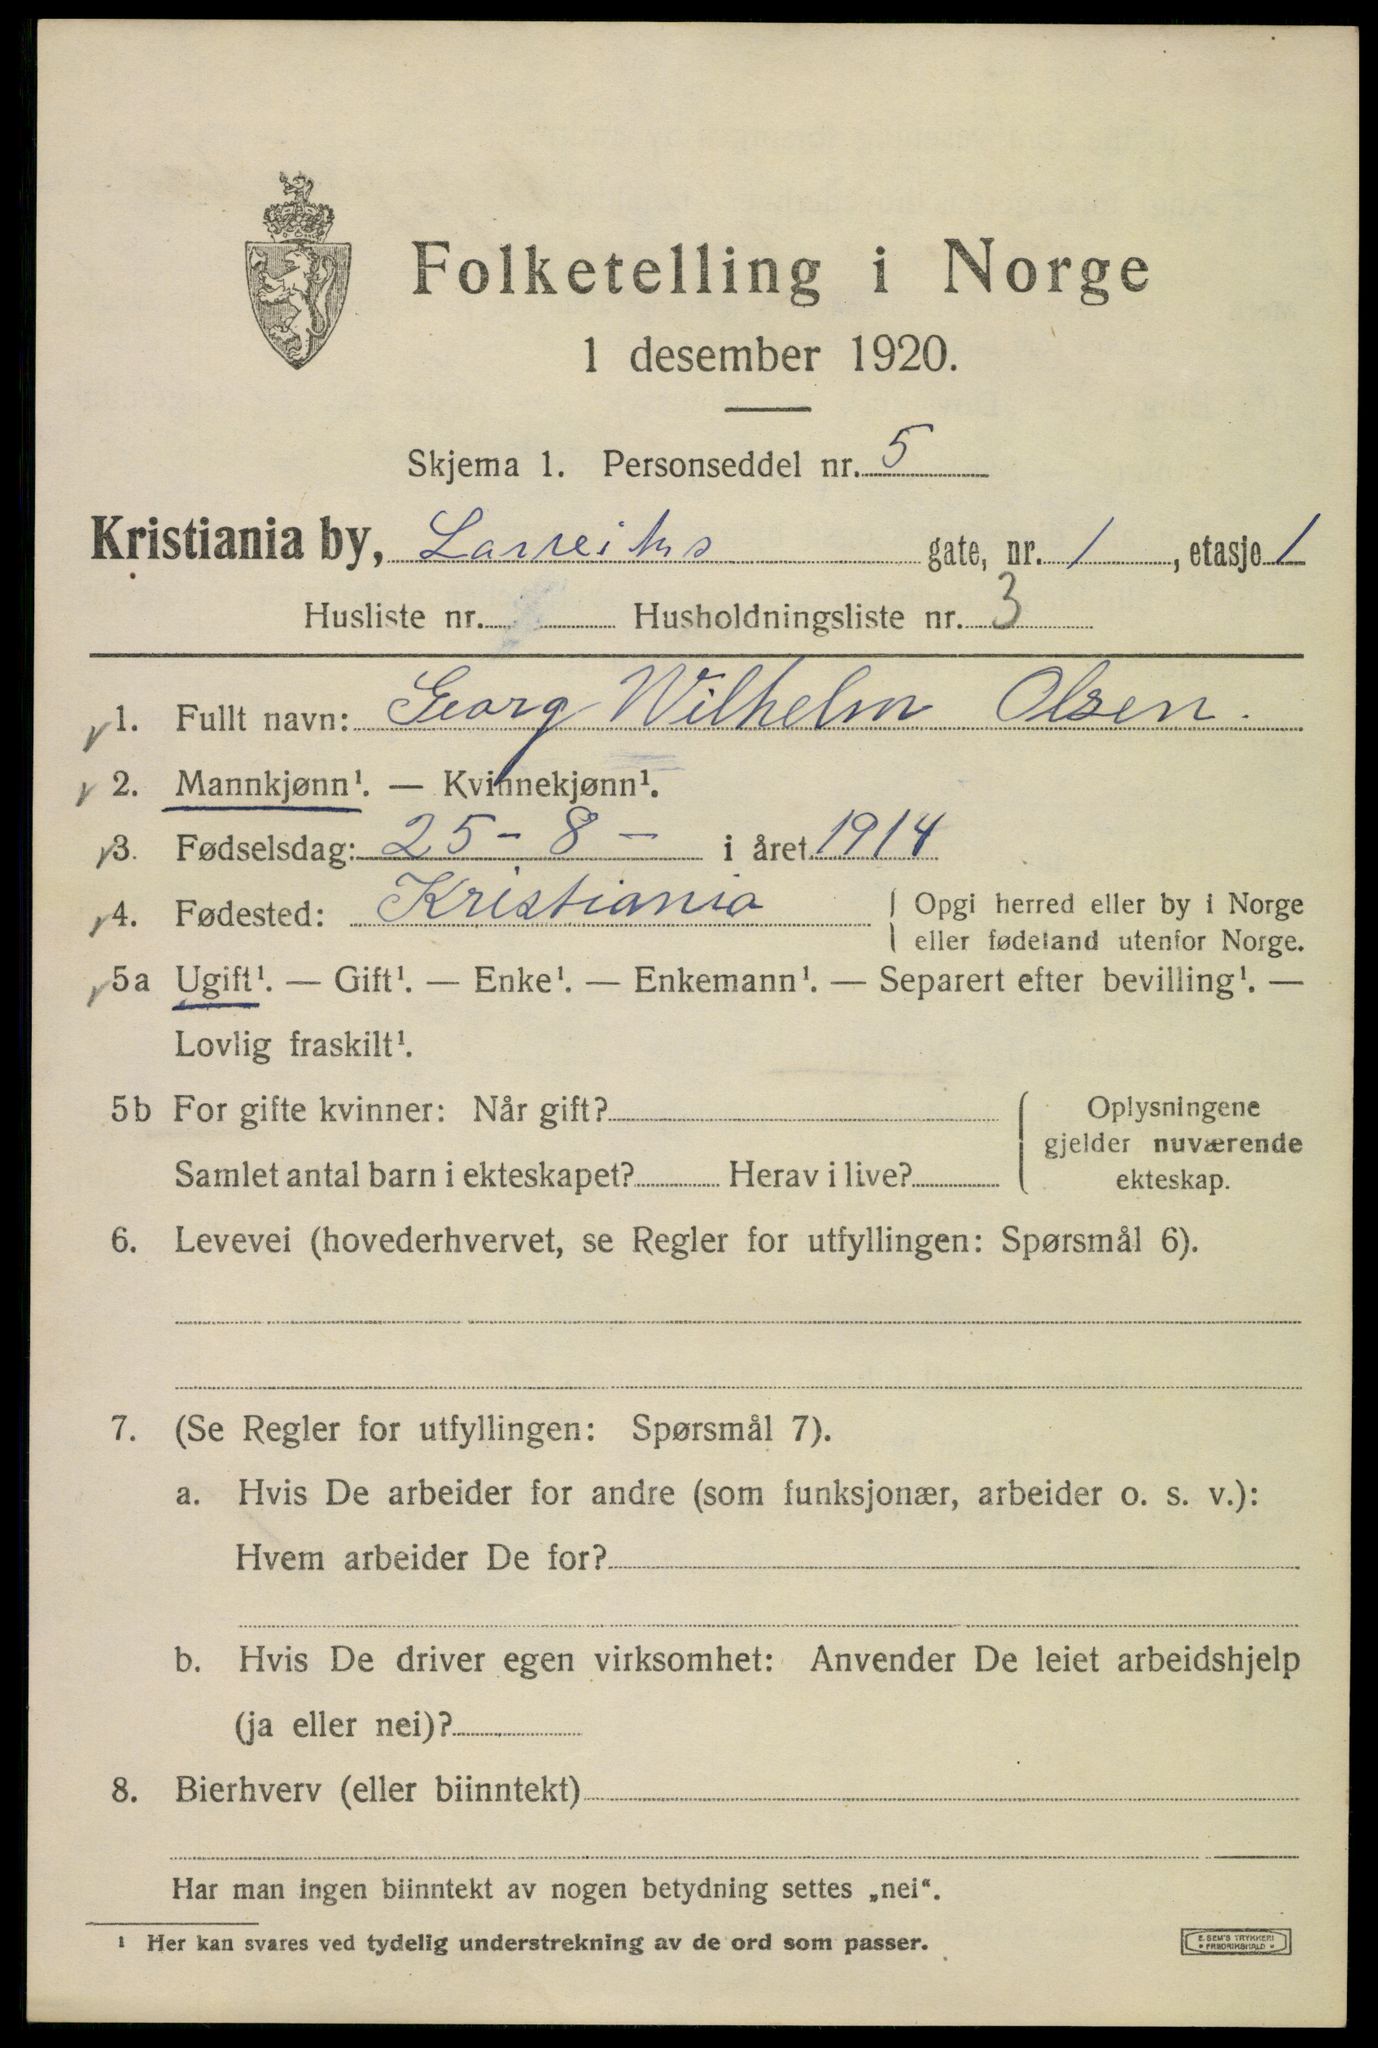 Folketelling i Norge
1 desember 1920.
Skjema 1. Personseddel nr. 5
Kristiania by, gate, nr. 1, etasje 1
Husliste nr. Husholdningsliste nr. 3
1. Fullt navn: Georg Wilhelm Olsen.
2. Mannkjønn¹. — Kvinnekjønn¹.
3. Fødselsdag: 25 - 8 - i året 1914
4. Fødested: Kristiania { Opgi herred eller by i Norge
eller fødeland utenfor Norge.
5a Ugift¹. — Gift¹. — Enke¹. — Enkemann¹. — Separert efter bevilling¹. —
Lovlig fraskilt¹.
5b For gifte kvinner: Når gift? Oplysningene
gjelder nuværende
Samlet antal barn i ekteskapet? Herav i live? ekteskap.
6. Levevei (hovederhvervet, se Regler for utfyllingen: Spørsmål 6).
7. (Se Regler for utfyllingen: Spørsmål 7).
a. Hvis De arbeider for andre (som funksjonær, arbeider o. s. v.):
Hvem arbeider De for?
b. Hvis De driver egen virksomhet: Anvender De leiet arbeidshjelp
(ja eller nei)?
8. Bierhverv (eller biinntekt)
Har man ingen biinntekt av nogen betydning settes „nei“.
¹ Her kan svares ved tydelig understrekning av de ord som passer.
E. SEM'S TRYKKERI
FREDRIKSHALD